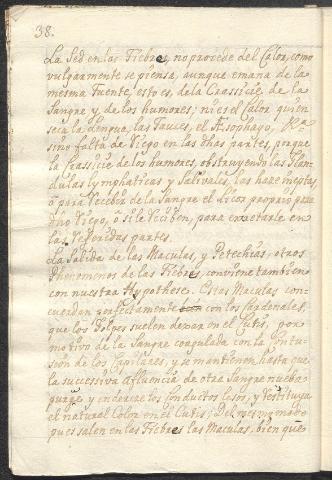 38.
La Sed en las Fiebres, no procede del Calor, como
vulgarmente se piensa, aunque emana de la
mesma fuente, esto es, de la Crassicie de la
Sangre y de los humores; ni es el Calor quien
seca la lengua, las fauces, el Æsophago, &a
sino falta de riego en las dhas partes, porque
la Crassicie de los humores, obstruyendo las Glan
dulas lymphaticas y Salivales, las haze ineptas
ò para recebir de la Sangre el licor proprio para
dho riego, ò si le reciben, para excretarle en
las referidas partes.
La Salida de las Maculas, y Petechias, y otros
Phenomenos de las Fiebres, conviene tambien
con nuestra Hypothese. Estas Maculas con
cuerdan perfectamente con los Cardenales,
que los Golpes suelen dexar en el Cutis, por
motivo de la Sangre coagulada con la Contu
sion de los Capilares, y se mantienen hasta que
la successiva afluencia de otra Sangre nueba
purge y enderece los conductos lesos, y restituya
el natural Color en el Cutis; Del mesmo modo
pues salen en las Fiebres las Maculas, bien que